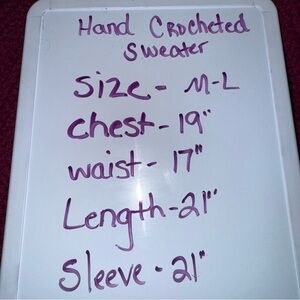 Hand Crocheted
Sweater
Size - M-L
Chest - 19"
waist - 17"
Length - 21"
Sleeve - 21"